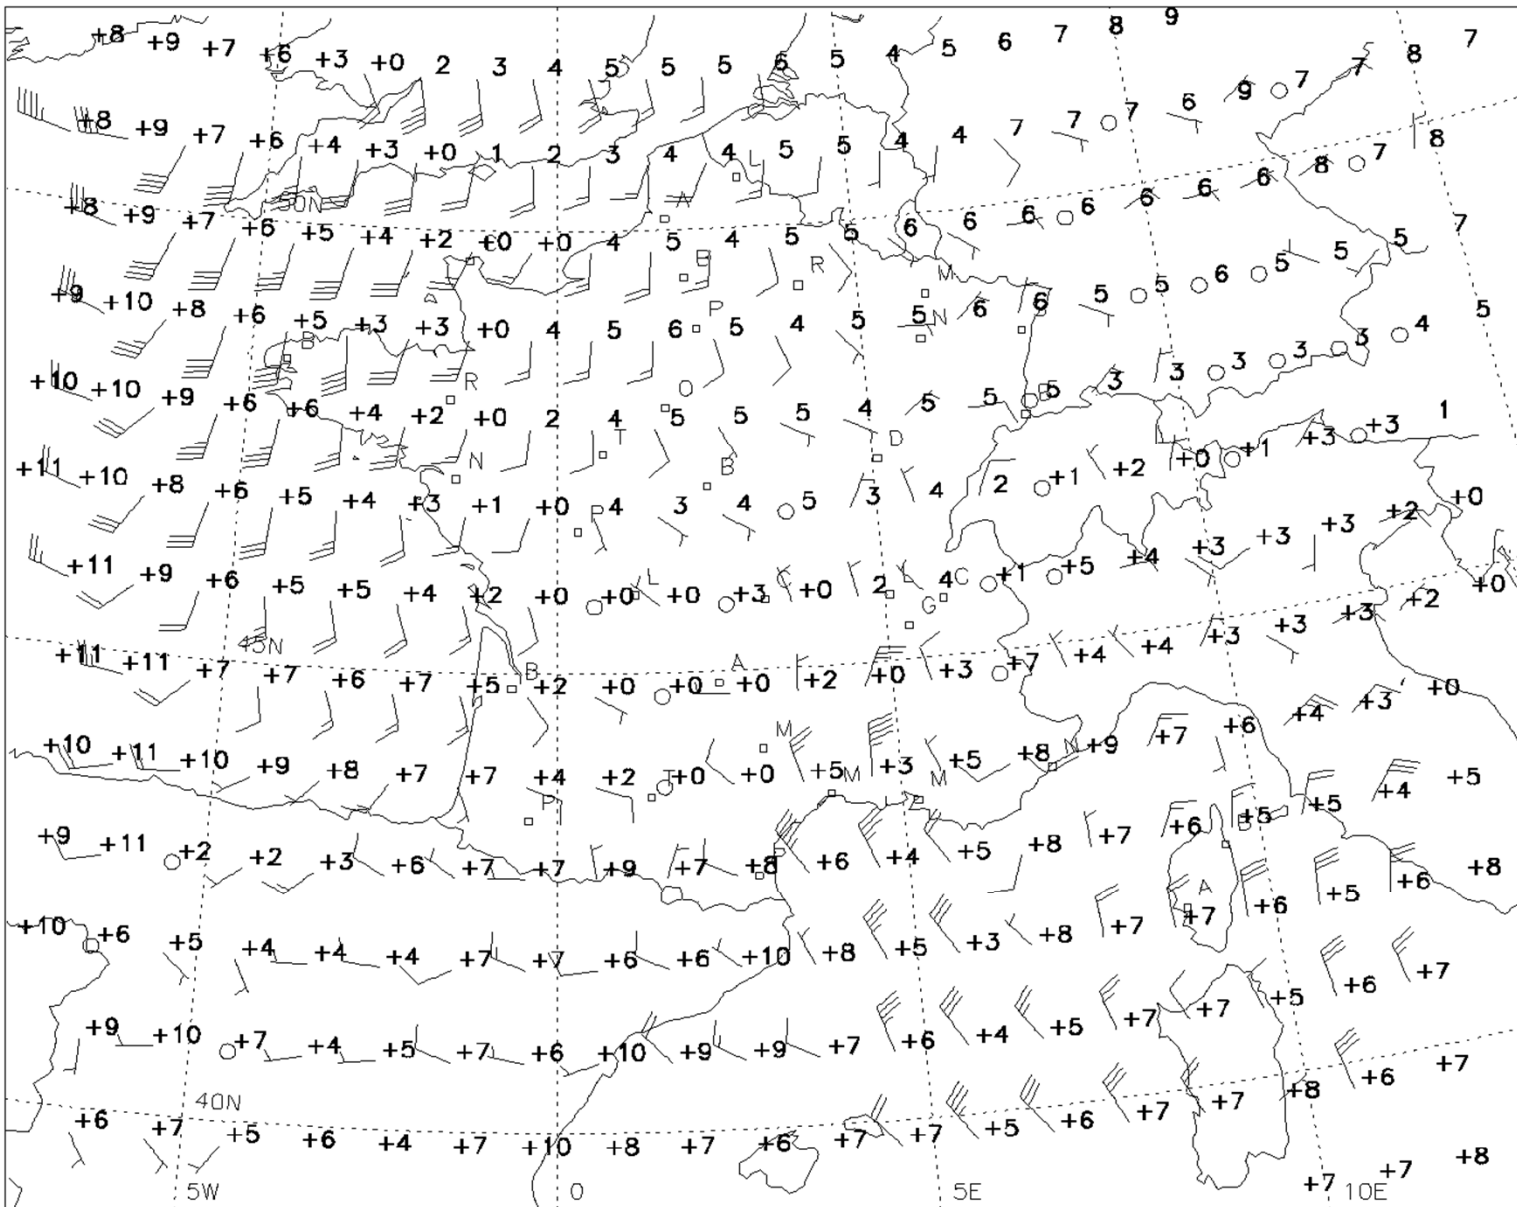 +8 +9 +7 +6 +3 +0 2 3 4 5 5 5 6 5 4 5 6 7 8 9
+8 +9 +7 +6 +4 +3 +0 1 2 3 4 4 5 5 4 4 7 7 7 6 9 7 7 8 7
L
50N A
+8 +9 +7 +6 +5 +4 +2 +0 +0 4 5 4 5 5 6 6 6 6 6 6 6 8 7 8
C B R M
+9 +10 +8 +6 +5 +3 +3 +0 4 5 6 5 4 5 5 6 6 5 5 6 5 5 5 7
B P N S
+10 +10 +9 +6 +6 +4 +2 +0 2 4 5 5 5 4 5 5 5 3 3 3 3 3 4 5
R O B
T D
+11 +10 +8 +6 +5 +4 +3 +1 +0 4 3 4 5 3 4 2 +1 +2 +0 +1 +3 +3 1
N B
P
+11 +9 +6 +5 +5 +4 +2 +0 +0 +0 +3 +0 2 4 +1 +5 +4 +3 +3 +3 +2 +0
L C L C
G
45N
+11 +11 +7 +7 +6 +7 +5 +2 +0 +0 +0 +2 +0 +3 +7 +4 +4 +3 +3 +3 +2 +0
B A
+10 +11 +10 +9 +8 +7 +7 +4 +2 +0 +0 +5 +3 +5 +8 +9 +7 +6 +4 +3 +0
M
T M M N
P
+9 +11 +2 +2 +3 +6 +7 +7 +9 +7 +8 +6 +4 +5 +8 +7 +6 +5 +5 +4 +5
P B
A
+10 +6 +5 +4 +4 +4 +7 +7 +6 +6 +10 +8 +5 +3 +8 +7 +7 +6 +5 +6 +8
+9 +10 +7 +4 +5 +7 +6 +10 +9 +9 +7 +6 +4 +5 +7 +7 +5 +6 +7
40N
+6 +7 +5 +6 +4 +7 +10 +8 +7 +6 +7 +7 +5 +6 +7 +7 +8 +6 +7
+7 +7 +8
5W 0 5E 10E